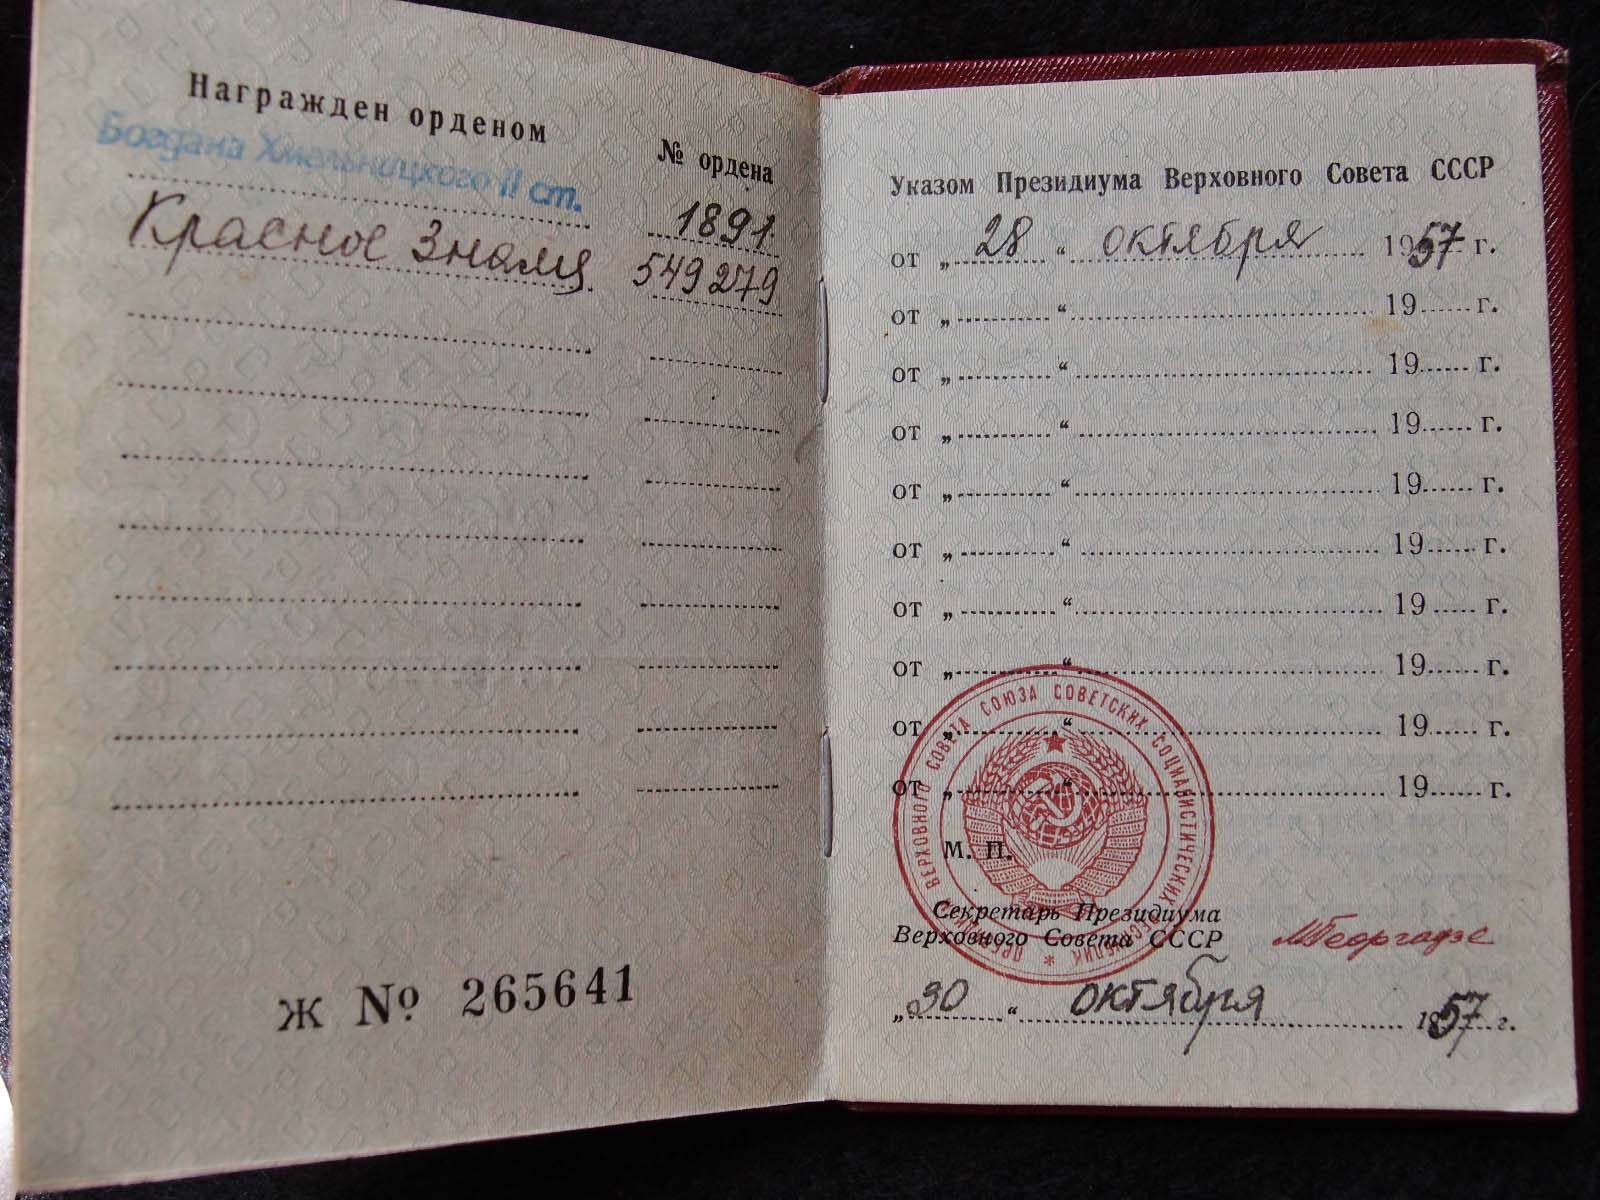 Награжден орденом
№ ордена
Богдана Хмельницкого II ст.
1891.
Красное Знамя
549279
Ж № 265641
Указом Президиума Верховного Совета СССР
от „ 28 “ октября 1957 г.
от „ “ 19 г.
от „ “ 19 г.
от „ “ 19 г.
от „ “ 19 г.
от „ “ 19 г.
от „ “ 19 г.
от „ “ 19 г.
от „ “ 19 г.
от „ “ 19 г.
ПРЕЗИДИУМ ВЕРХОВНОГО СОВЕТА СОЮЗА СОВЕТСКИХ СОЦИАЛИСТИЧЕСКИХ РЕСПУБЛИК *
М. П.
Секретарь Президиума
Верховного Совета СССР
МГеоргадзе
„ 30 “ октября 1957 г.